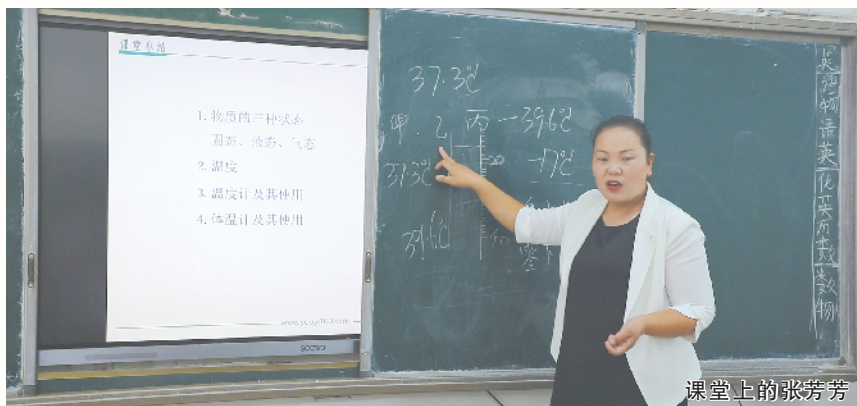 课堂总结
1. 物质的三种状态
固态、液态、气态
2. 温度
3. 温度计及其使用
4. 体温计及其使用
seewo
37.3℃
甲. 乙 丙 -39.6℃
37.3℃ -17℃
39.6℃
英
语
物
语
英
化
英
历
数
数
物
课堂上的张芳芳